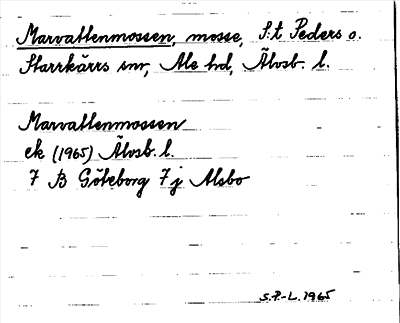 Marvattenmossen, mosse, S:t Peders o.
Starrkärrs snr, Ale hd, Älvsb. l.
Marvattenmossen
ek (1965) Älvsb. l.
7 B Göteborg 7 j Alsbo
S.P.-L. 1965